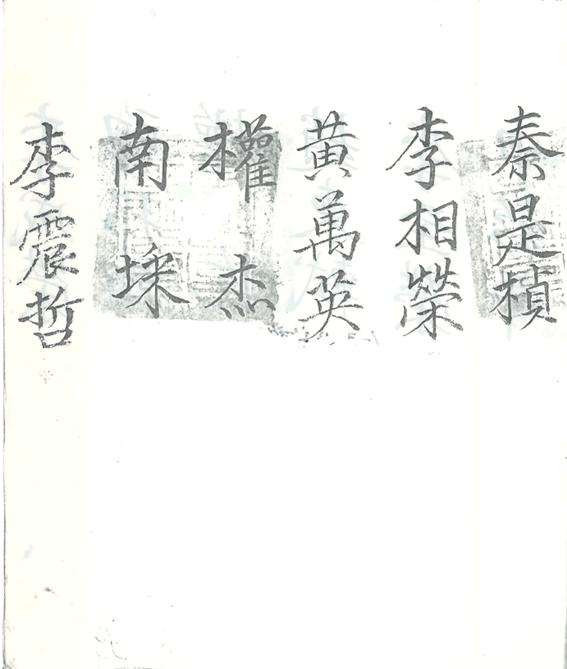 秦是楨
李相榮
黃萬英
權杰
南埰
李震哲